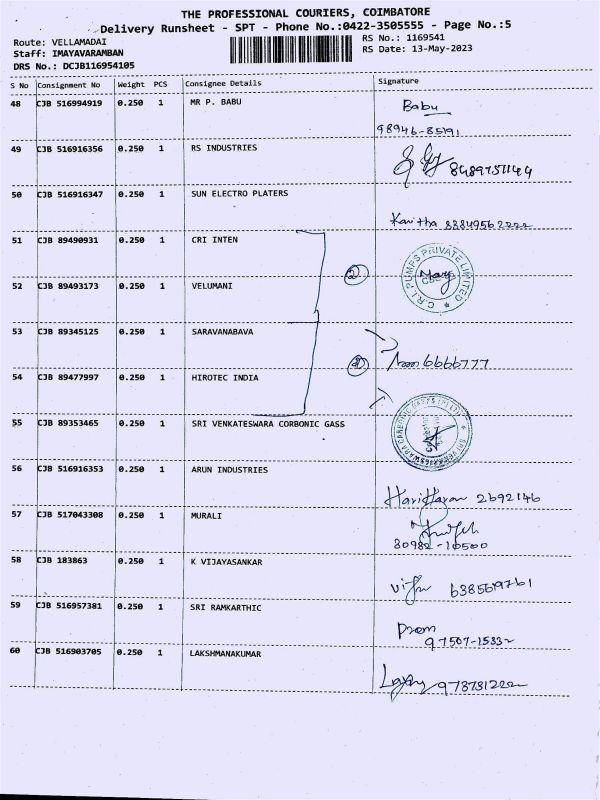 THE PROFESSIONAL COURIERS, COIMBATORE
Delivery Runsheet - SPT - Phone No.:0422-3505555 - Page No.:5
Route: VELLAMADAI
RS No.: 1169541
Staff: IMAYAVARAMBAN
RS Date: 13-May-2023
DRS No.: DCJB116954105
S No Consignment No Weight PCS Consignee Details Signature
48 CJB 516994919 0.250 1 MR P. BABU Babu
98946-85191
49 CJB 516916356 0.250 1 RS INDUSTRIES 8489751144
50 CJB 516916347 0.250 1 SUN ELECTRO PLATERS
Kavitha
51 CJB 89490931 0.250 1 CRI INTEN
C.R.I. PUMPS PRIVATE LIMITED
52 CJB 89493173 0.250 1 VELUMANI
53 CJB 89345125 0.250 1 SARAVANABAVA
6666777
54 CJB 89477997 0.250 1 HIROTEC INDIA
55 CJB 89353465 0.250 1 SRI VENKATESWARA CORBONIC GASS
56 CJB 516916353 0.250 1 ARUN INDUSTRIES
Hariharan 2692146
57 CJB 517043308 0.250 1 MURALI
80982-10500
58 CJB 183863 0.250 1 K VIJAYASANKAR
59 CJB 516957381 0.250 1 SRI RAMKARTHIC
Prem
97507-1533
60 CJB 516903705 0.250 1 LAKSHMANAKUMAR